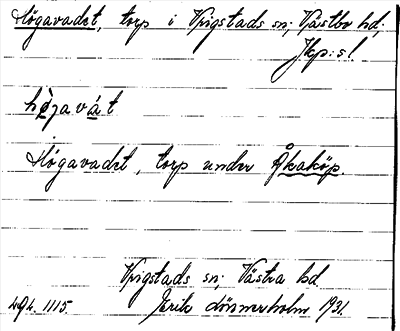 Högavadet, torp i Vrigstads sn; Västbo hd;
Jkp:s l.
högavát
Högavadet, torp under Åkaköp.
Vrigstads sn; Västra hd.
1115. Erik 1931.